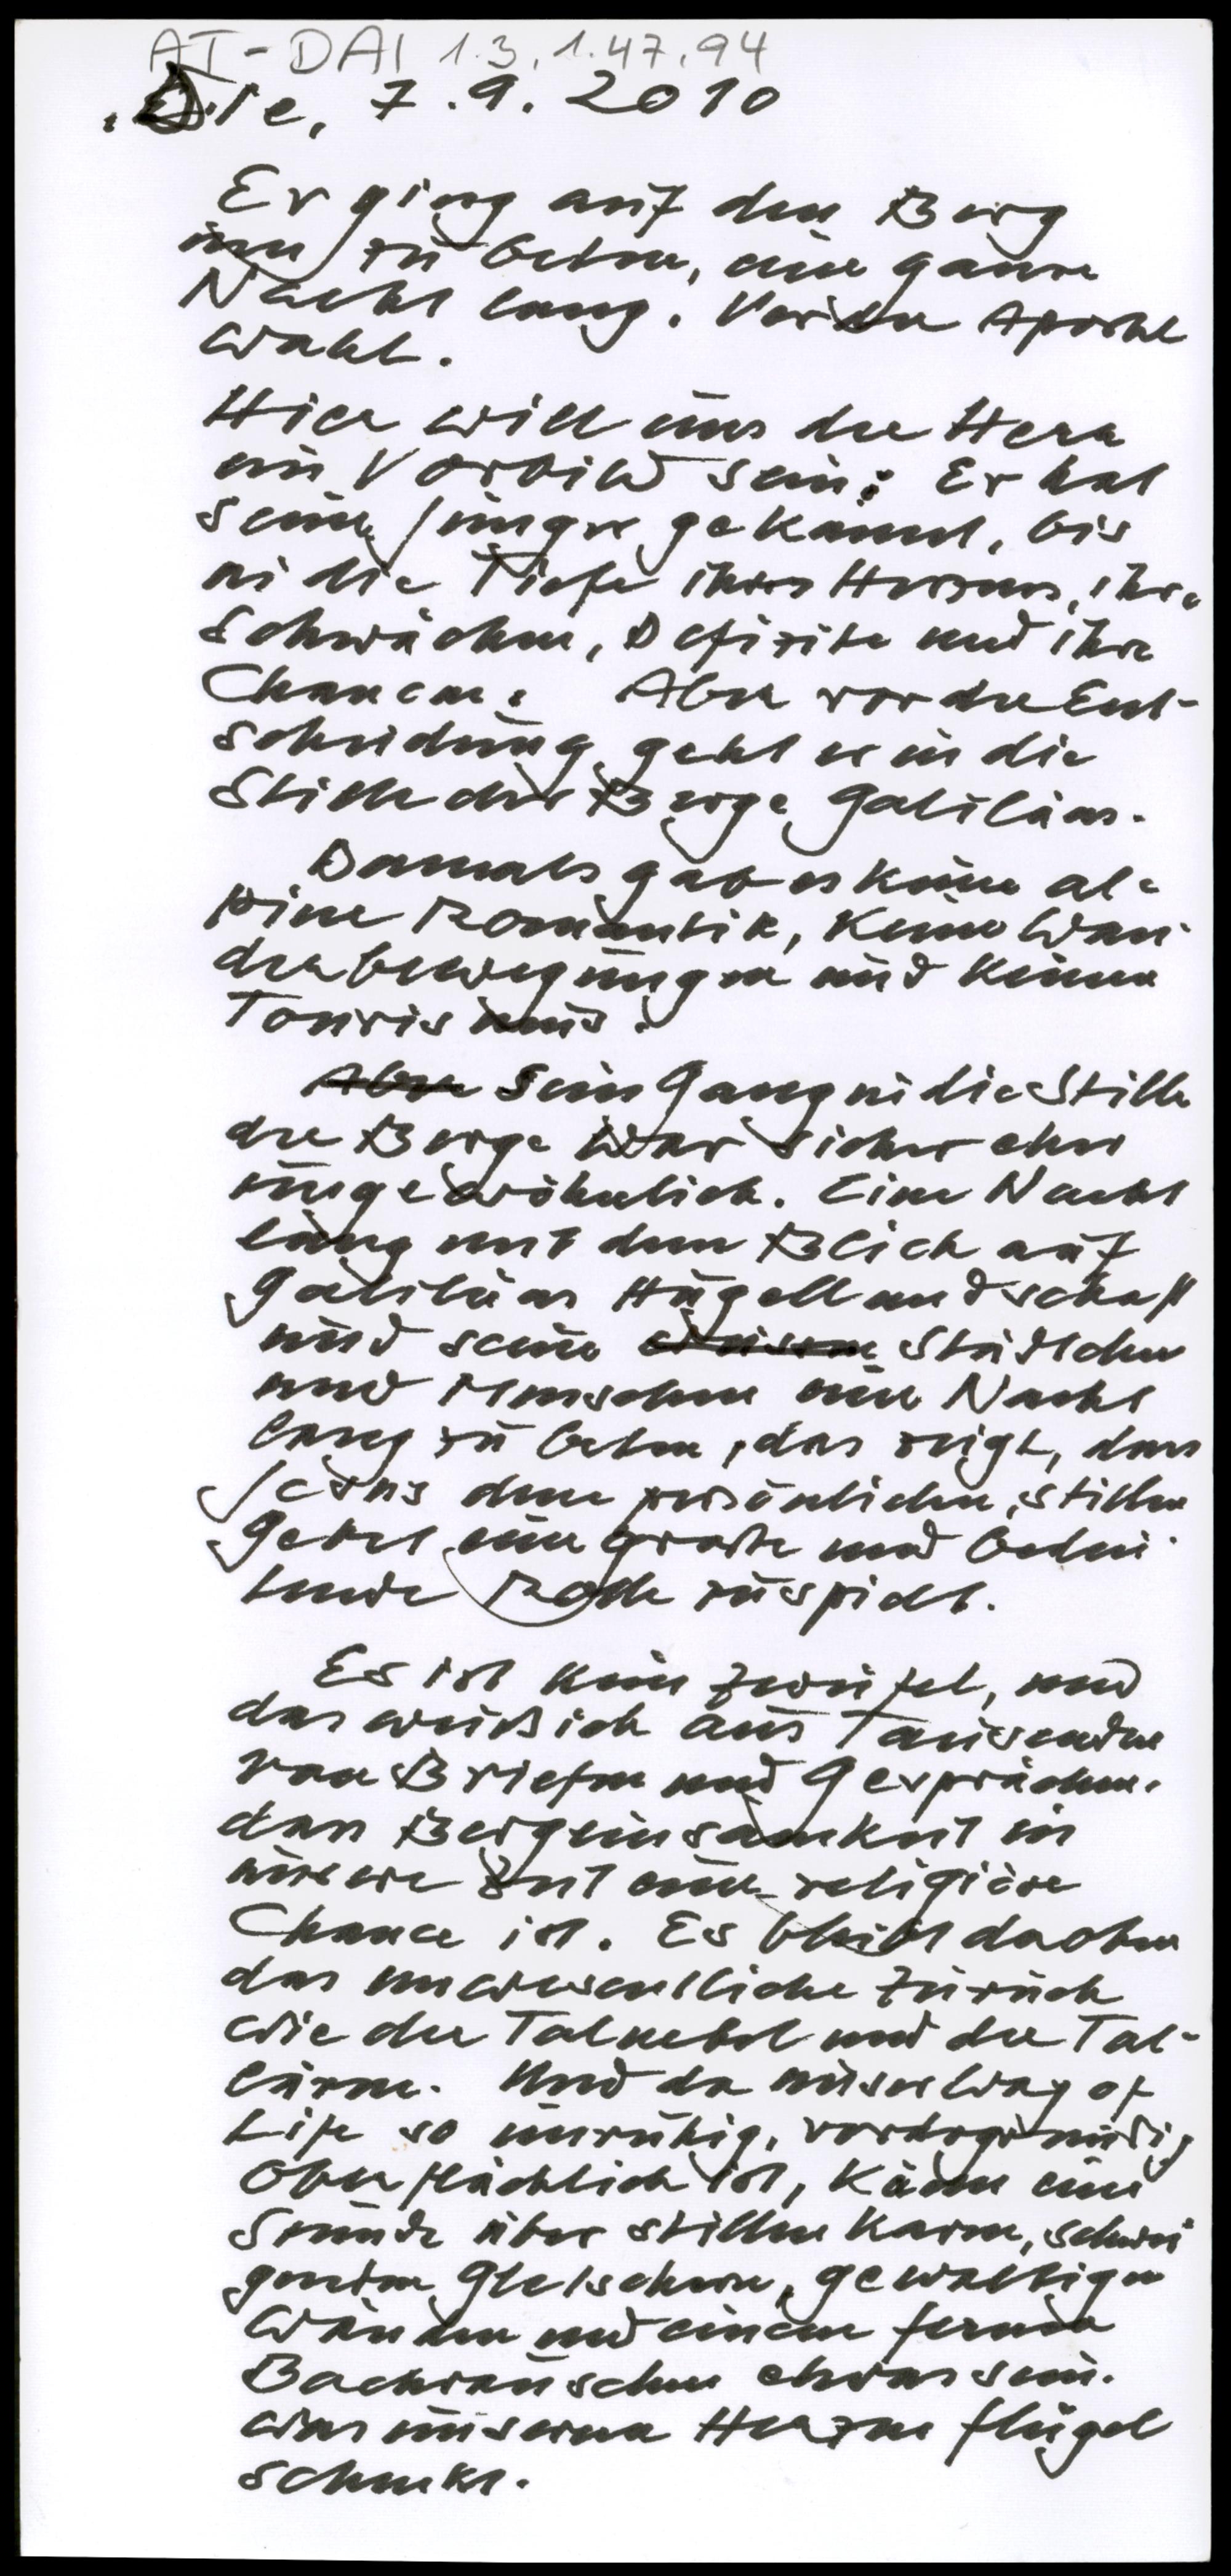 AT-DAI 1.3.1.47.94
Die, 7.9.2010
Er ging auf den Berg
um zu beten, eine ganze
Nacht lang. Vor der Apostel
wahl.
Hier will uns der Herr
ein Vorbild sein: Er hat
seine Jünger gekannt, bis
in die Tiefe ihres Herzens, ihre
Schwächen, Defizite und ihre
Chancen. Aber vor der Ent-
scheidung geht er in die
Stille der Berge Galiläas.
Damals gab es keine al-
pine Romantik, keine Wan-
derbewegungen und keinen
Tourismus.
Aber Sein Gang in die Stille
der Berge war sicher eher
ungewöhnlich. Eine Nacht
lang mit dem Blick auf
Galiläas Hügellandschaft
und seine Städtchen
und Menschen eine Nacht
lang zu beten, das zeigt, dass
Jesus dem persönlichen, stillen
Gebet eine große und bedeu-
tende Rolle zuspielt.
Es ist kein Zweifel, und
das weiß ich aus Tausenden
von Briefen und Gesprächen,
dass Bergeinsamkeit in
unsere Zeit eine religiöse
Chance ist. Es bleibt da oben
das unwesentliche zurück
wie der Talnebel und der Tal-
lärm. Und da unser Way of
Life so unruhig, vordergründig,
oberflächlich ist, kann eine
Stunde über stillen Karen, schwei
genden Gletschern, gewaltigen
Wänden und einem fernen
Bachrauschen etwas sein,
was unserem Herzen Flügel
schenkt.